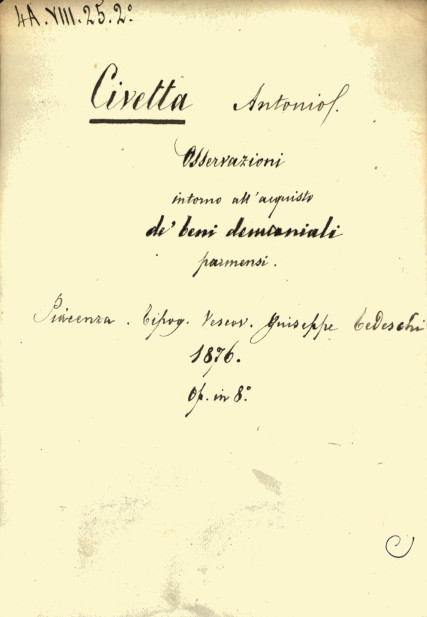 4A.VIII.25.2°
Civetta Antonio
Osservazioni
intorno all'acquisto
de' beni demaniali
parmensi.
Piacenza. Tipog. Vescov. Giuseppe Tedeschi
1876.
Op. in 8°